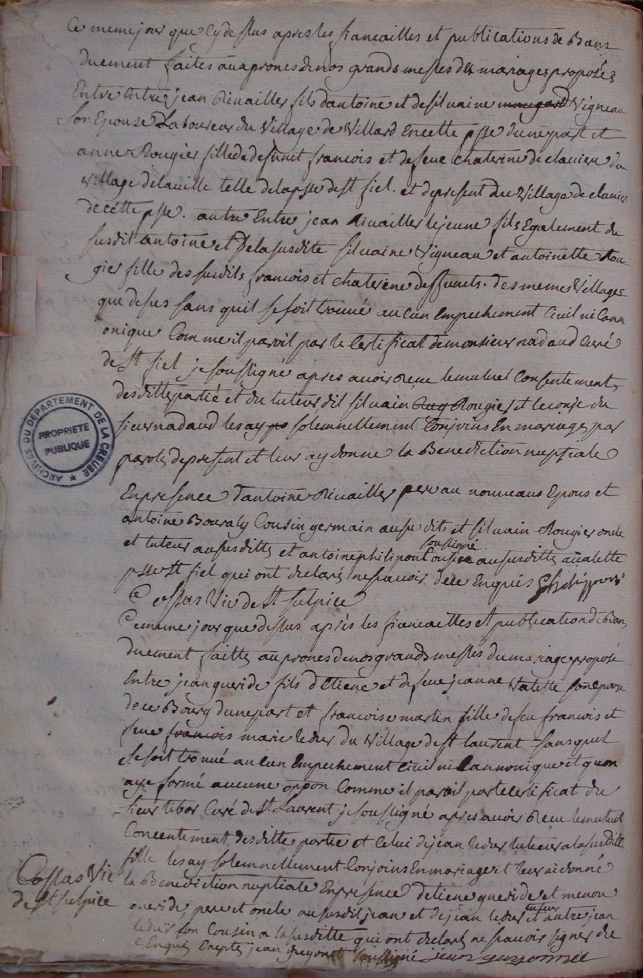 Ce meme jour que cy dessus apres les fiancailles et publications de Bans
duement faites aux prones de nos grandes messes des mariages proposés
Entre Entre jean Rivailler fils d'antoine et de silvaine Vigneau
son Epouse Laboureur du Village de Villard En cette psse d'une part et
anne Rougier fille de defunct francois et de feue chaterine de claviere du
village de la ville telle de la psse de st fiel. et de present du Village de claviere
de cette psse. autre Entre jean Rivailler le jeune fils Egalement du
susdit antoine et de la susdite silvaine Vigneau et antoinette Rou
gier fille des susdits francois et chaterine deffuncts. des meme Villages
que dessus sans qu'il se soit trouvé aucun Empechement Civil ni Can
nonique Comme il paroit par le Certificat de monsieur nadaud Curé
de St fiel je soussigné apres avoir recue le mutuel Consentement
des dittes partie et du tuteur dit silvain Rougier et le conge du
sieur nadaud les ay solemnellement Conjoins En mariages par
parole de present et leur ay donne la Benediction nuptiale
En presence d'antoine Rivailler pere au nouveaux Epous et
antoine Bouraly Cousin germain au susdits et silvain Rougier oncle
et tuteur au susdittes et antoine philipont soussigné au susdittes
psse St fiel qui ont declaré ne scavoir de ce Enquis Philippont
Cossas Vic de St sulpice
Ce meme jour que dessus après les fiancailles et publication de Ban
duement faittes au prones de nos grandes messes du mariage proposé
Entre jean queride fils d'Etiene et de feue jeanne Valette son epouse
de ce Bourg d'une part et francoise martin fille de feu francois et
feue francois marie ledur du Village de st laurent sans qu'il
se soit trouvé aucun Empechement Civil ni Cannonique et qu'on
aye formé aucune oppon Comme il paroit par le certificat du
sieur tibor Curé de St Laurent je soussigné apres avoir Recu le mutuel
Concentement des ditte partie et Celui de jean ledur tuteur a la susditte
fille les ay solemnellement Conjoins En mariage et leur ai donné
la Benediction nuptiale En presence d'etiene queride et
queride pere et oncle au susdit jean et de jean ledur tuteur et autre jean
ledur son Cousin a la susditte qui ont declaré ne scavoir signer de
ce Enquis Excepte jean soussigné
Cossas Vic
de St sulpice
ARCHIVES DU DÉPARTEMENT DE LA CREUSE
PROPRIÉTÉ
PUBLIQUE